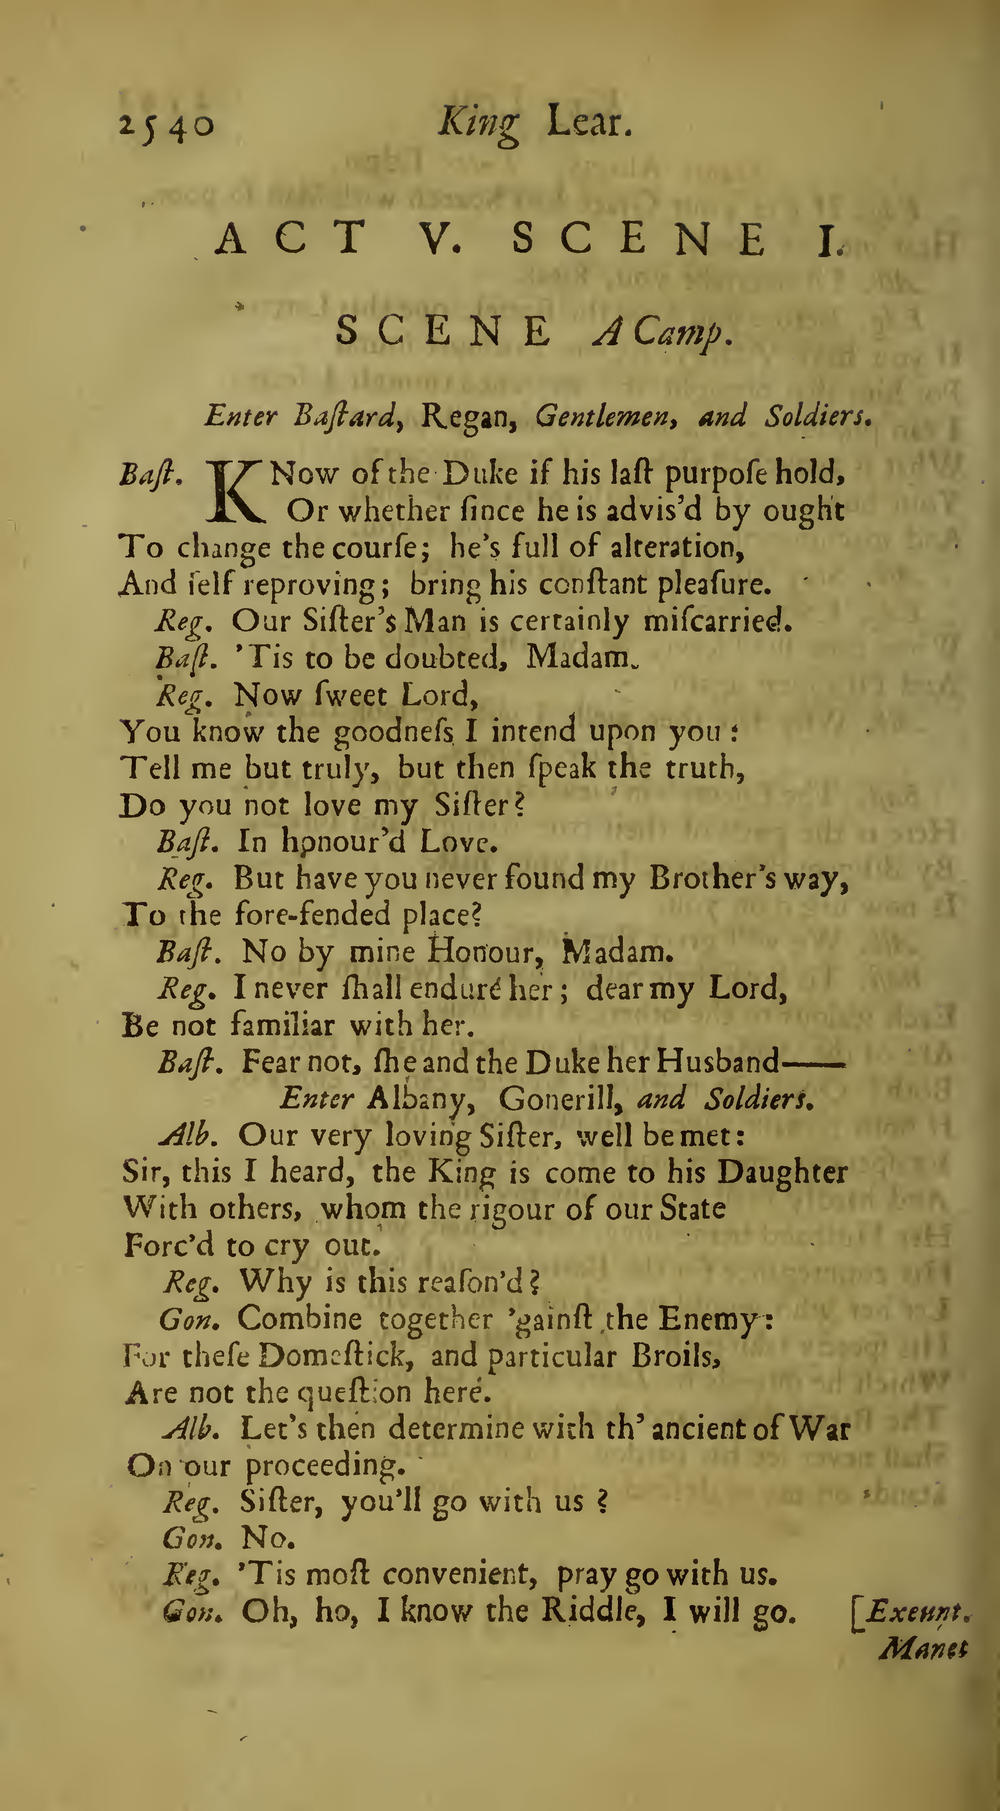 2540 King Lear.
ACT V. SCENE I.
SCENE A Camp.
Enter Baſtard, Regan, Gentlemen, and Soldiers.
Baſt. KNow of the Duke if his laſt purpoſe hold,
Or whether ſince he is advis'd by ought
To change the courſe; he's full of alteration,
And ſelf reproving; bring his conſtant pleaſure.
Reg. Our Siſter's Man is certainly miſcarried.
Baſt. 'Tis to be doubted, Madam.
Reg. Now ſweet Lord,
You know the goodneſs I intend upon you:
Tell me but truly, but then ſpeak the truth,
Do you not love my Siſter?
Baſt. In honour'd Love.
Reg. But have you never found my Brother's way,
To the fore-fended place?
Baſt. No by mine Honour, Madam.
Reg. I never ſhall endure her; dear my Lord,
Be not familiar with her.
Baſt. Fear not, ſhe and the Duke her Husband——
Enter Albany, Gonerill, and Soldiers.
Alb. Our very loving Siſter, well be met:
Sir, this I heard, the King is come to his Daughter
With others, whom the rigour of our State
Forc'd to cry out.
Reg. Why is this reaſon'd?
Gon. Combine together 'gainſt the Enemy:
For theſe Domeſtick, and particular Broils,
Are not the queſtion here.
Alb. Let's then determine with th' ancient of War
On our proceeding.
Reg. Siſter, you'll go with us?
Gon. No.
Reg. 'Tis moſt convenient, pray go with us.
Gon. Oh, ho, I know the Riddle, I will go. [Exeunt.
Manet